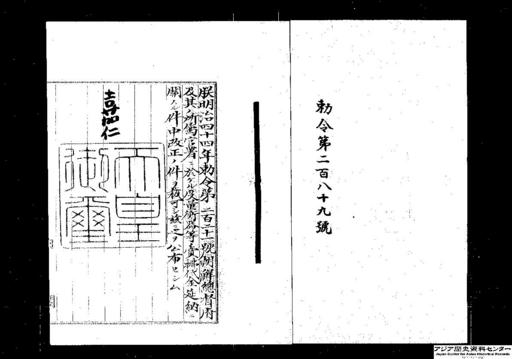 勅令第二百八十九號
朕明治四十四年勅令第二百三十一號朝鮮總督府
及其ノ所屬官署ニ於ケル度量衡器等賣捌代金延納ニ
關スル件中改正ノ件ヲ裁可シ玆ニ之ヲ公布セシム
嘉仁
天皇
御璽
アジア歴史資料センター
Japan Center for Asian Historical Records